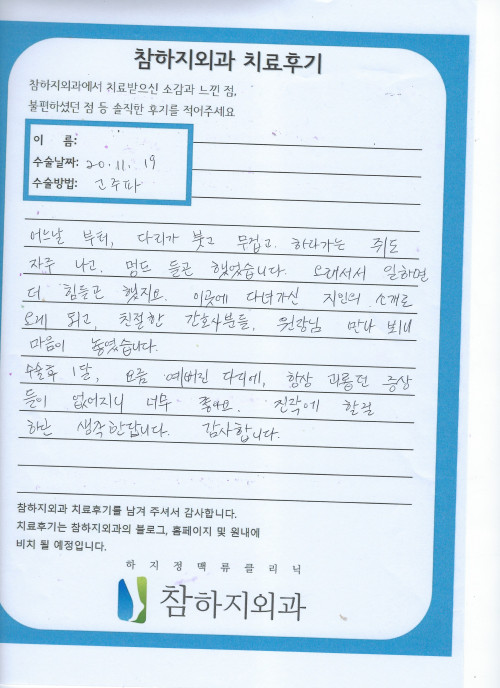 참하지외과 치료후기
참하지외과에서 치료받으신 소감과 느낀 점,
불편하셨던 점 등 솔직한 후기를 적어주세요
이 름:
수술날짜: 20. 11. 19
수술방법: 고주파
어느날 부터, 다리가 붓고 무겁고. 하다가는 쥐도
자주 나고. 멍도 들곤 했었습니다. 오래서서 일하면
더 힘들곤 했지요. 이곳에 다녀가신 지인의 소개로
오게 되고, 친절한 간호사분들, 원장님 만나 뵈니
마음이 놓였습니다.
수술후 1달, 요즘 예뻐진 다리에, 항상 괴롭던 증상
들이 없어지니 너무 좋아요. 진작에 할걸
하는 생각 한답니다. 감사합니다.
참하지외과 치료후기를 남겨 주셔서 감사합니다.
치료후기는 참하지외과의 블로그, 홈페이지 및 원내에
비치 될 예정입니다.
하지정맥류클리닉
참하지외과